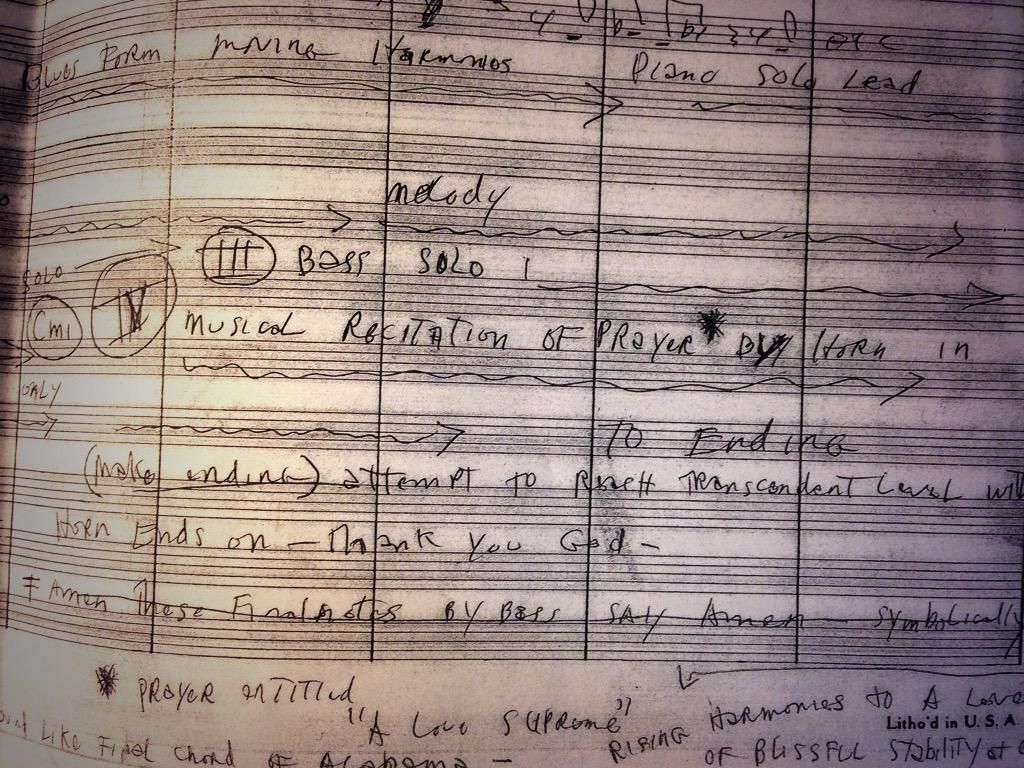 etc
Blues Form moving Harmonies Piano Solo Lead
melody
III Bass Solo
SOLO
Cmi IV Musical Recitation OF PRayer * By Horn in
ONLY
To Ending
(make ending) attempt to Reach Transcendent Level
Horn Ends on — Thank You God —
Amen These Final notes By Bass SAy Amen — Symbolically
* PRayer enTiTled
"A Love Supreme"
RISING Harmonies to A Love
Like Final Chord of Alabama —
OF BLISSFUL Stability at
Litho'd in U. S. A.